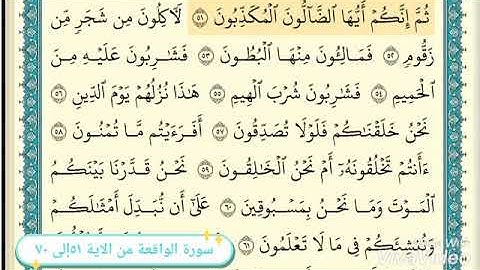 ثُمَّ إِنَّكُمْ أَيُّهَا ٱلضَّآلُّونَ ٱلْمُكَذِّبُونَ ٥١ لَأٓكِلُونَ مِن شَجَرٍ مِّن
زَقُّومٍ ٥٢ فَمَالِـُٔونَ مِنْهَا ٱلْبُطُونَ ٥٣ فَشَٰرِبُونَ عَلَيْهِ مِنَ
ٱلْحَمِيمِ ٥٤ فَشَٰرِبُونَ شُرْبَ ٱلْهِيمِ ٥٥ هَٰذَا نُزُلُهُمْ يَوْمَ ٱلدِّينِ ٥٦
نَحْنُ خَلَقْنَٰكُمْ فَلَوْلَا تُصَدِّقُونَ ٥٧ أَفَرَءَيْتُم مَّا تُمْنُونَ ٥٨
ءَأَنتُمْ تَخْلُقُونَهُۥٓ أَمْ نَحْنُ ٱلْخَٰلِقُونَ ٥٩ نَحْنُ قَدَّرْنَا بَيْنَكُمُ
ٱلْمَوْتَ وَمَا نَحْنُ بِمَسْبُوقِينَ ٦٠ عَلَىٰٓ أَن نُّبَدِّلَ أَمْثَٰلَكُمْ
وَنُنشِئَكُمْ فِى مَا لَا تَعْلَمُونَ ٦١
سورة الواقعة من الاية ٥١إلى ٧٠
VivaVideo